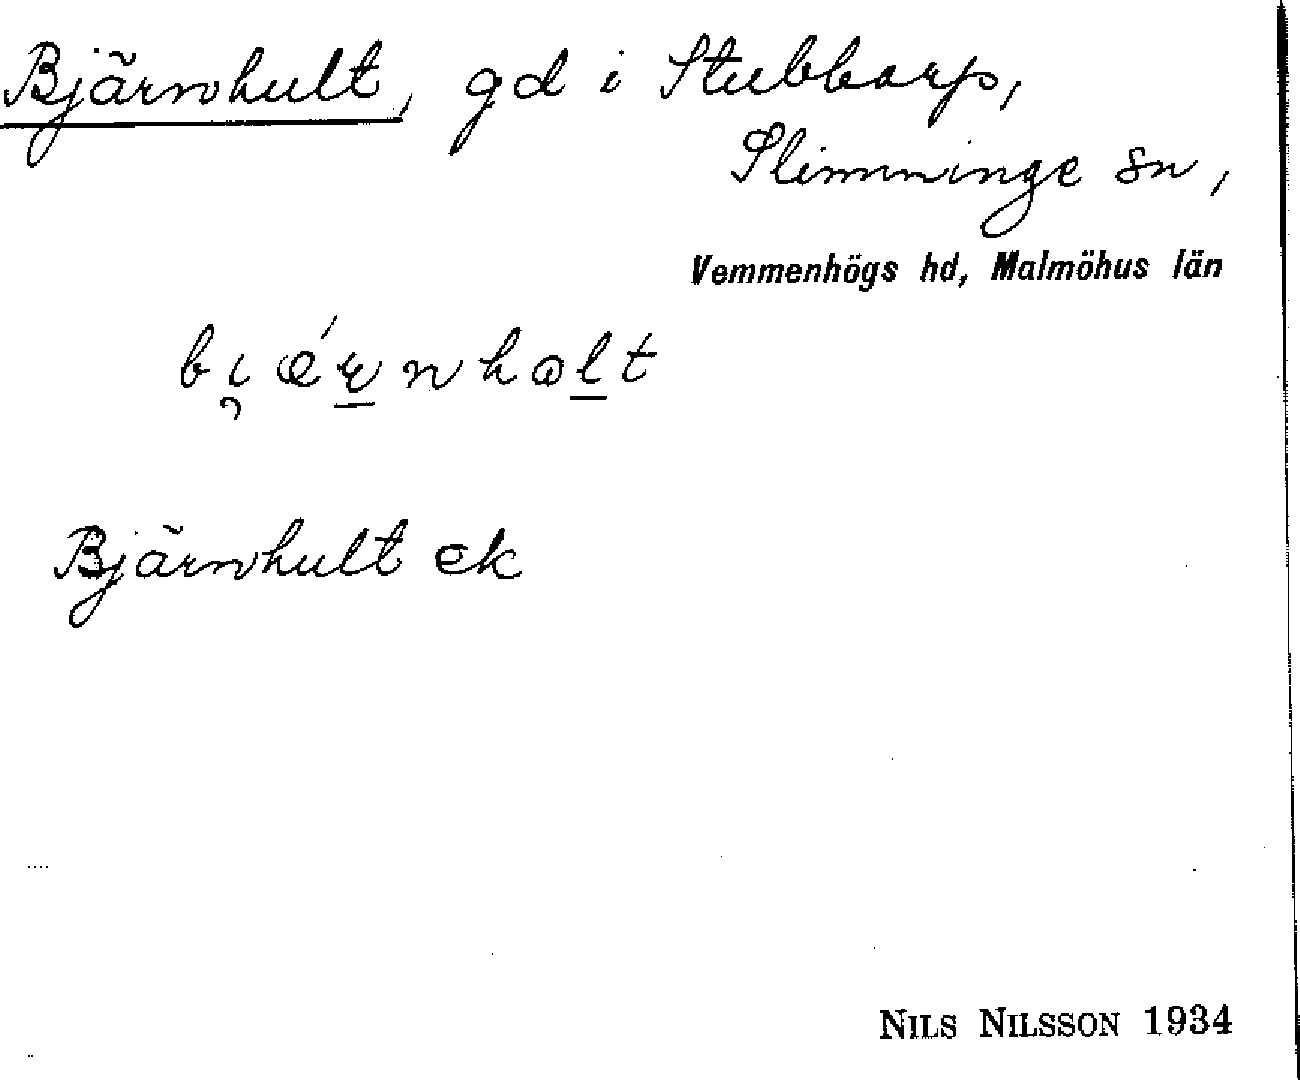 Bjärnhult, gd i Stubbarp,
Slimminge sn,
Vemmenhögs hd, Malmöhus län
Bjärnhult ek
NILS NILSSON 1934